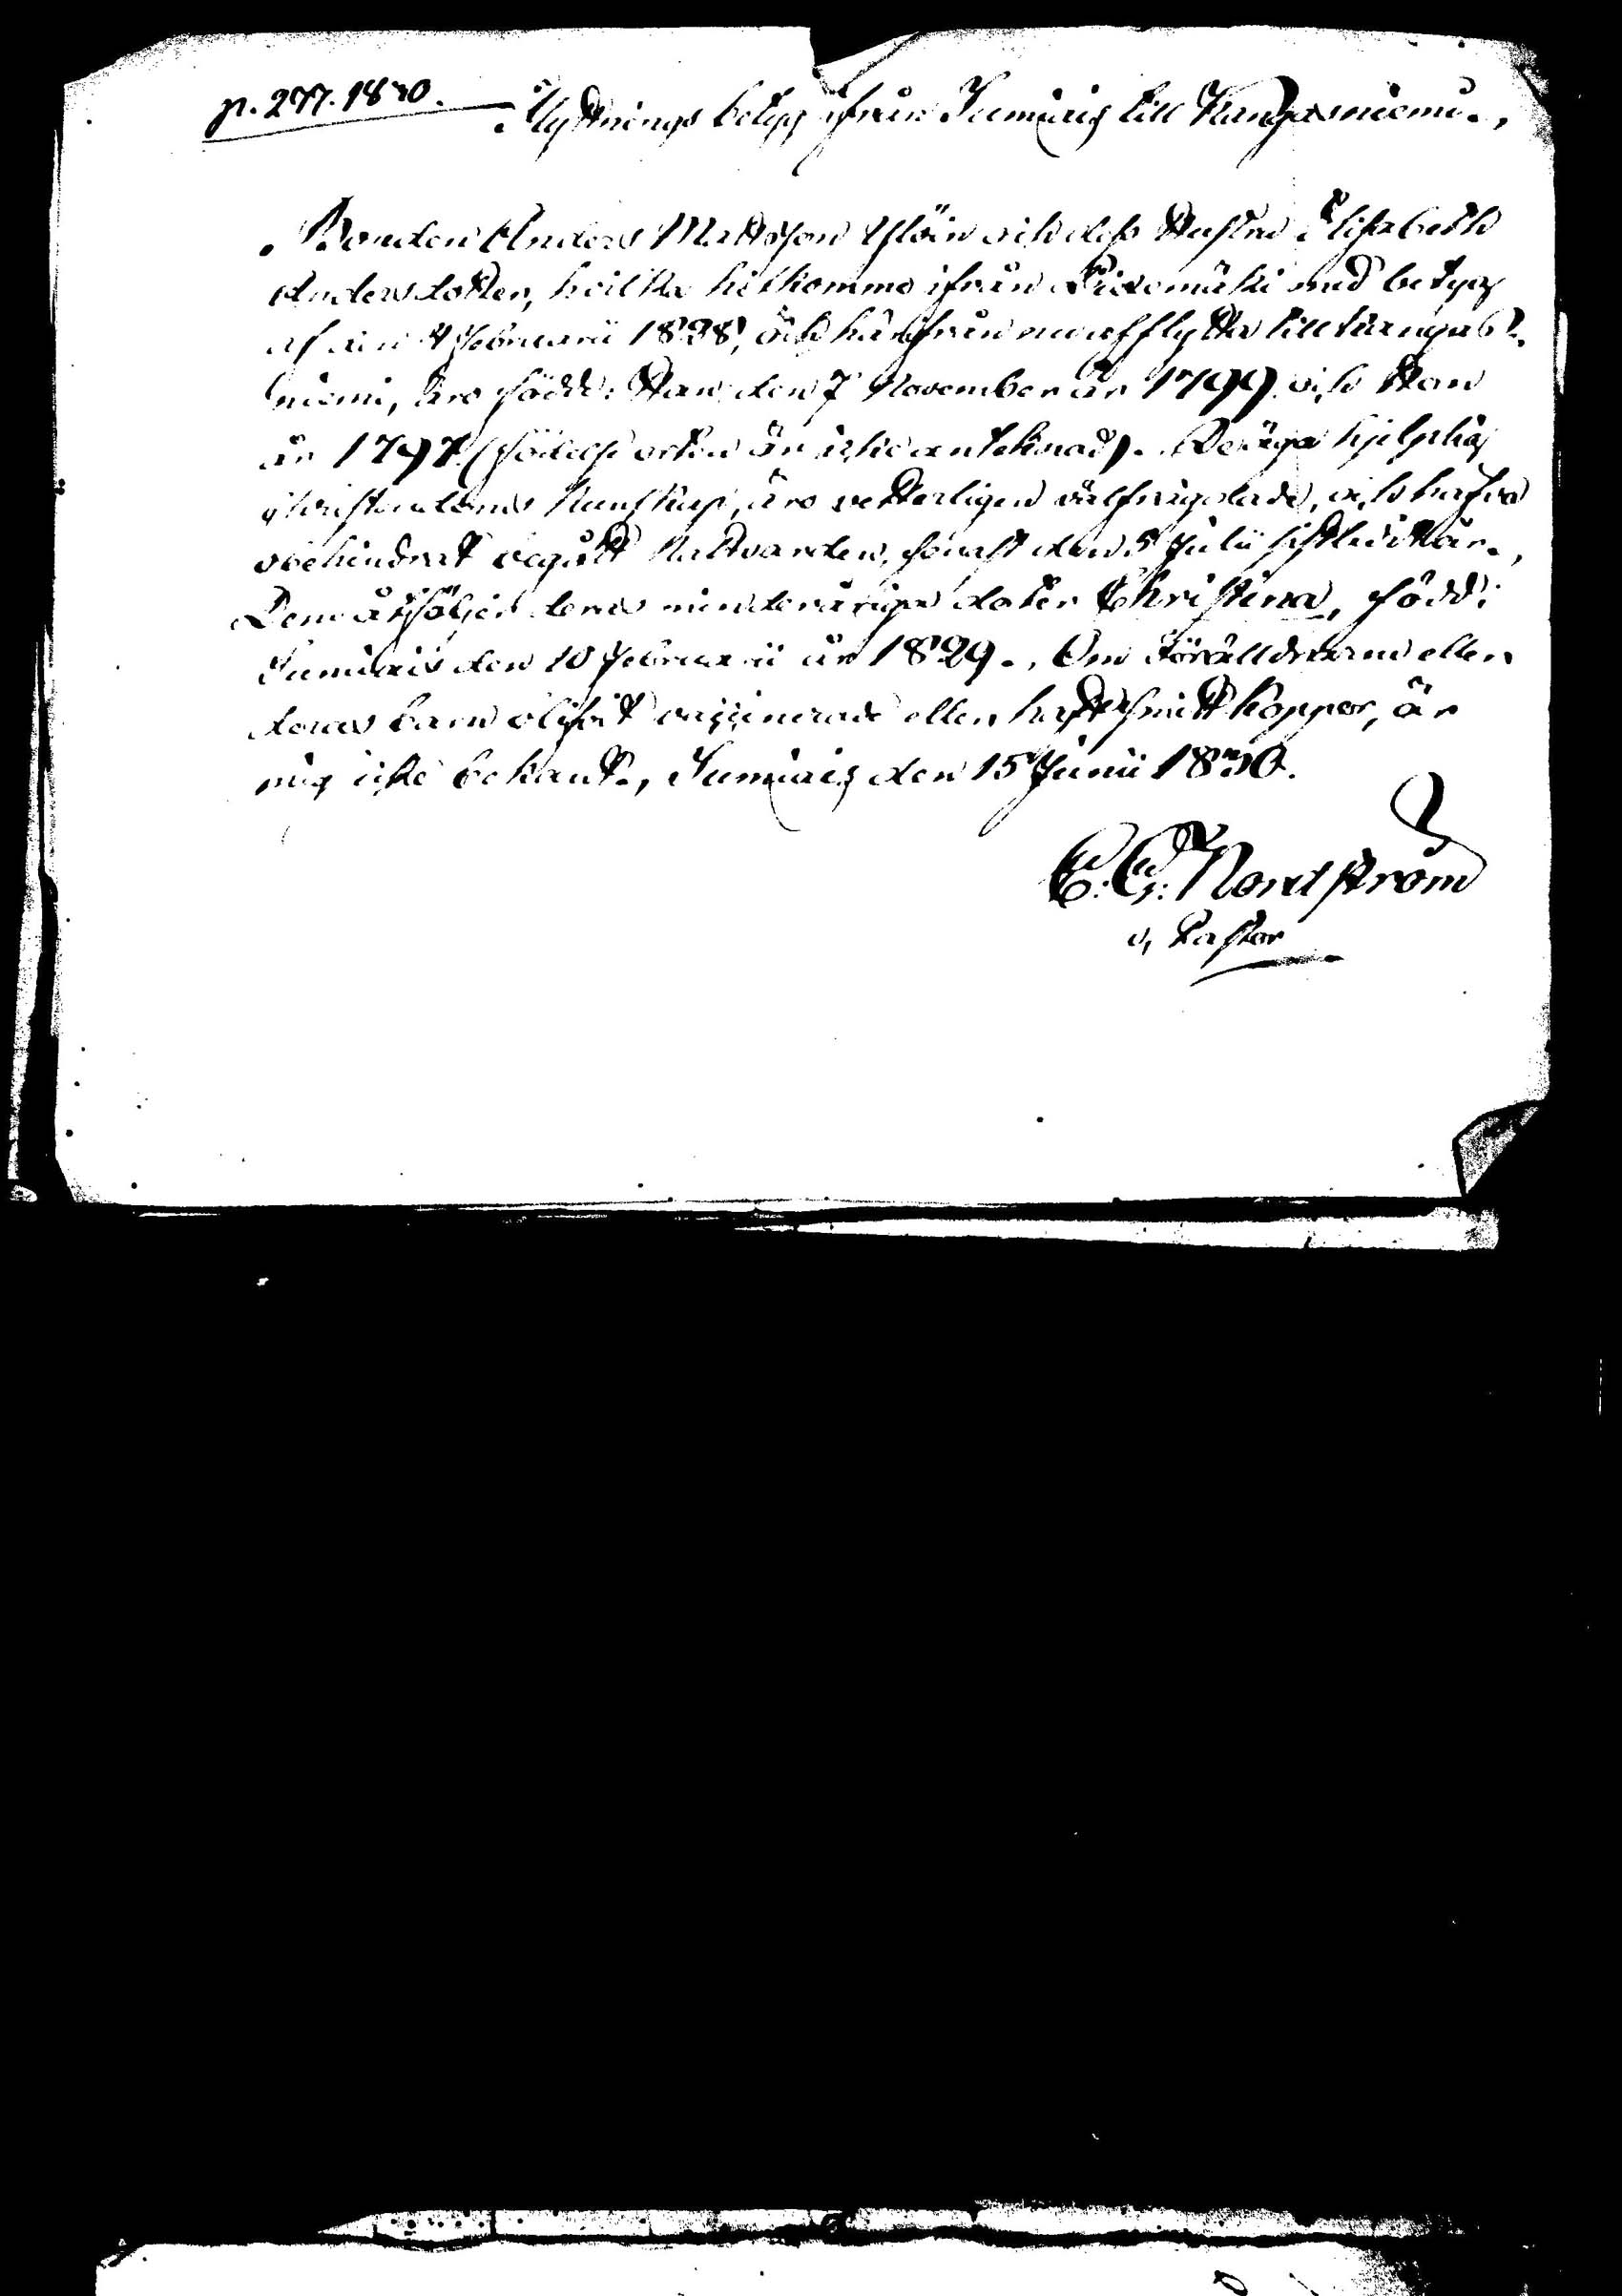 p. 277. 1830.
Flyttnings betyg ifrån Jumiais till Kangasniemi.,
Bonden Anders Mattsson Ylöin och dess Hustru Elisabeth
Andersdotter, hvilka hitkommo ifrån Piexemäki med betyg
af den 4 Februarii 1828, och härifrån nu afflytta till Kangas=
niemi, äro födde: Han den 7 November år 1799. och Hon
år 1797. (födelse orten är icke antecknad). De äga hjelplig
Christendoms kunskap, äro vetterligen välfrägdade, och hafva
obehindrat begått Nattvarden, senast den 5 Julii sistledit år.,
Dem åtföljer deras minderåriga doter Christina, född i
Jumiais den 10 Februarii år 1829., Om Föräldrarne eller
deras barn blifvit vaccinerade eller haft Smittkoppor, är
mig icke bekant., Jumiais den 15 Junii 1830.
C. G. Nordström
v, Pastor